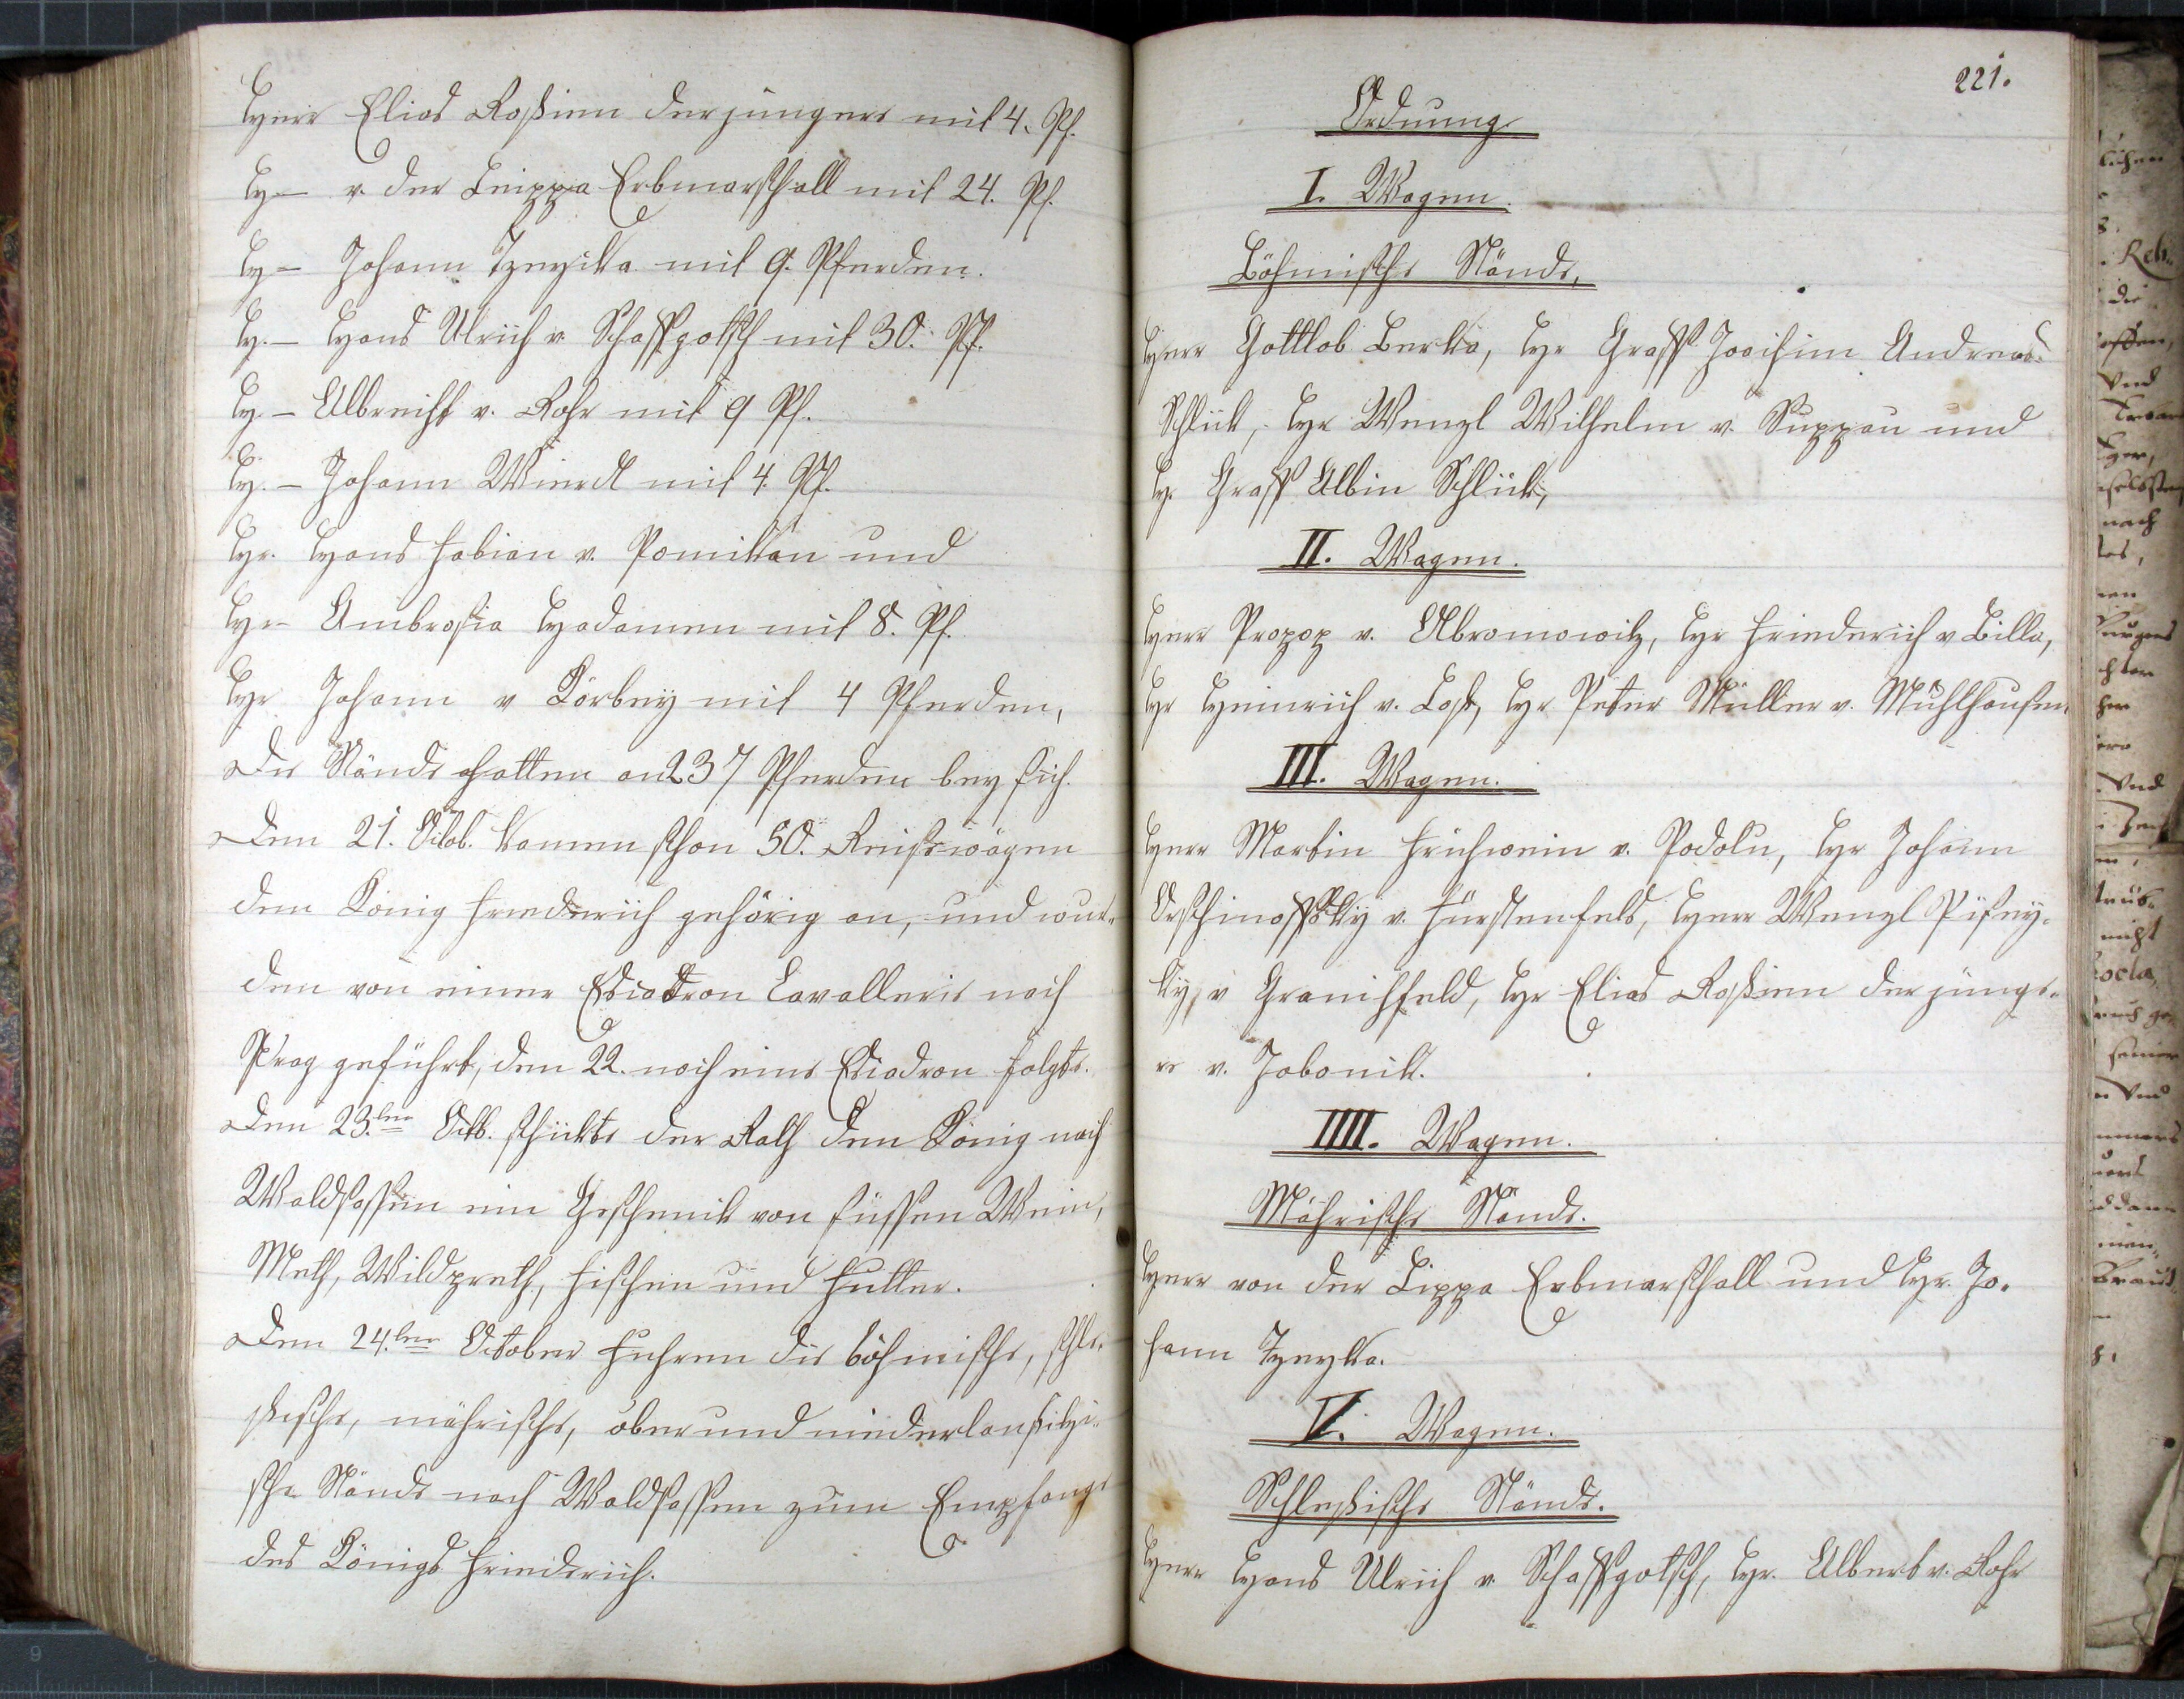 Herr Elias Roßinn der jüngere mit 4. Pf.
H– v. der Leippa Erbmarschall mit 24. Pf.
H– Johann Tzeyika mit 9. Pferden.
H.– Hans Ulrich v. Schaffgotsch mit 30. Pf.
H.– Albrecht v. Rohr mit 9 Pf.
H.– Johann Wierdl mit 4. Pf.
Hr. Hans Fabian v. Ponikkau und
Hr– Ambrosia Hadamen mit 8. Pf.
Hr Johann v Körbey mit 4 Pferden,
Die Stände hatten an 237 Pferden bey sich.
Den 21. Octob. kamen schon 50. Reißewägen
dem König Friederich gehörig an, und wur„
den von einer Escadron Cavallerie nach
Prag geführt, den 22. noch eine Escadron folgte.
Den 23.ten Octb. schickte der Rath dem König nach
Waldsassen ein Geschenk von süssen Wein,
Meth, Wildpreth, Fischen und Futter.
Den 24.ten October fuhren die böhmische, schle„
sische, mährische, ober und niederlausitzi„
sche Stände nach Waldsassen zum Empfange
des Königs Friedrich.
221.
Ordnung
I. Wagen.
Böhmische Stände,
Herr Gottlob Berka, Hr Graff Joachim Andreas
Schlick, Hr Wenzl Wilhelm v. Ruppau und
H. Graff Albin Schlick,
II. Wagen.
Herr Propop v. Elbromowitz, Hr Friederich v Billa,
Hr Heinrich v. Lost, Hr Peter Müller v. Mühlhausen
III. Wagen.
Herr Martin Frühwein v. Podoln, Hr Johann
Orschinoffsky v. Fürstenfeld, Herr Wenzl Pisey„
ky, v Granichfeld, Hr Elias Roßinn der jünge„
re v. Jabonik.
IIII. Wagen.
Mährische Stände.
Herr von der Lippa Erbmarschall und Hr. Jo„
hann Tzeyka.
V. Wagen.
Schleßische Stände.
Herr Hans Ulrich v. Schaffgotsch, Hr. Albert v. Rohr